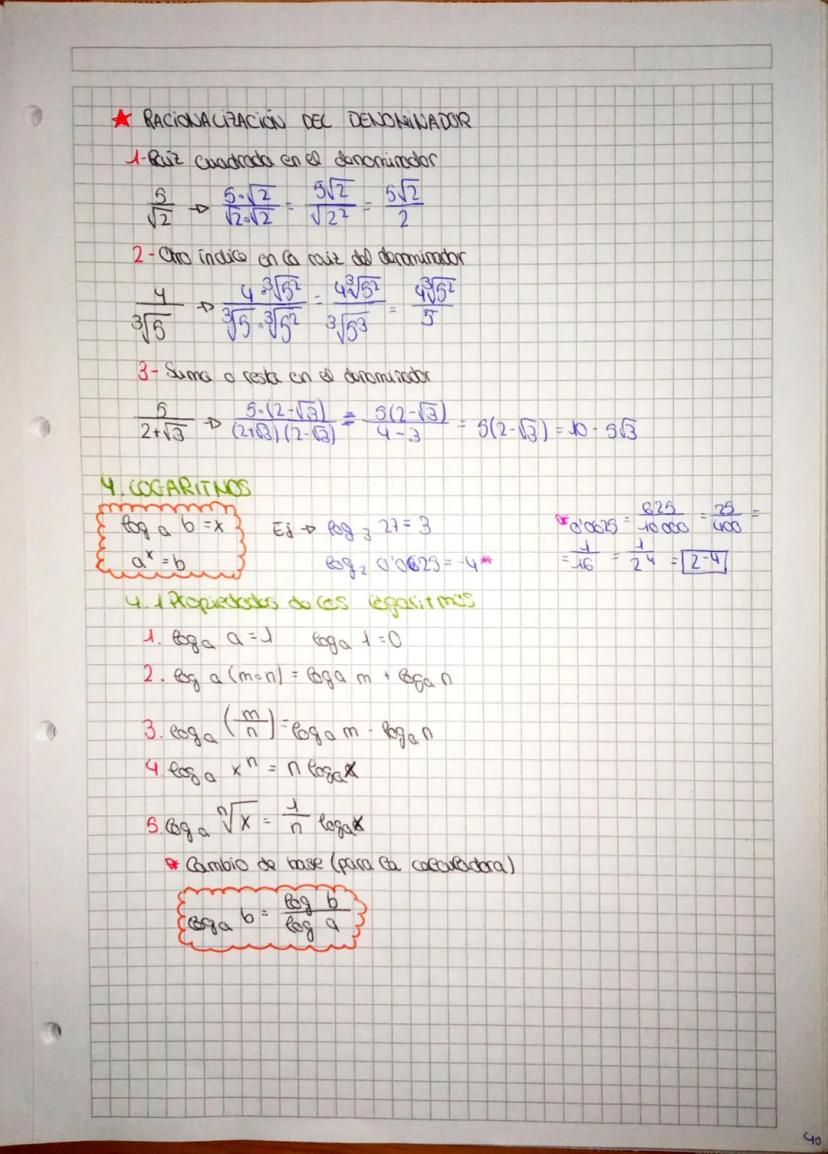 ★ RACIONALIZACIÓN DEL DENOMINADOR
1-Raíz cuadrada en el denominador
5/√2 → 5·√2/√2·√2 = 5√2/√2² = 5√2/2
2-Otro índice en la raíz del denominador
4/∛5 → 4·∛5²/∛5·∛5² = 4∛5²/∛5³ = 4∛5²/5
3-Suma o resta en el denominador
5/2+√3 → 5·(2-√3)/(2+√3)(2-√3) = 5(2-√3)/4-3 = 5(2-√3) = 10 - 5√3
4. LOGARITMOS
log a b = x
aˣ = b
Ej → log₃ 27 = 3
log₂ 0'0625 = -4*
*0'0625 = 625/10000 = 25/400 =
= 1/16 = 1/2⁴ = 2⁻⁴
4.1 Propiedades de los logaritmos
1. logₐ a = 1 logₐ 1 = 0
2. log a (m·n) = logₐ m + logₐ n
3. logₐ (m/n) = logₐ m - logₐ n
4. logₐ xⁿ = n logₐx
5. logₐ ⁿ√x = 1/n logₐx
* Cambio de base (para la calculadora)
logₐ b = log b/log a
40